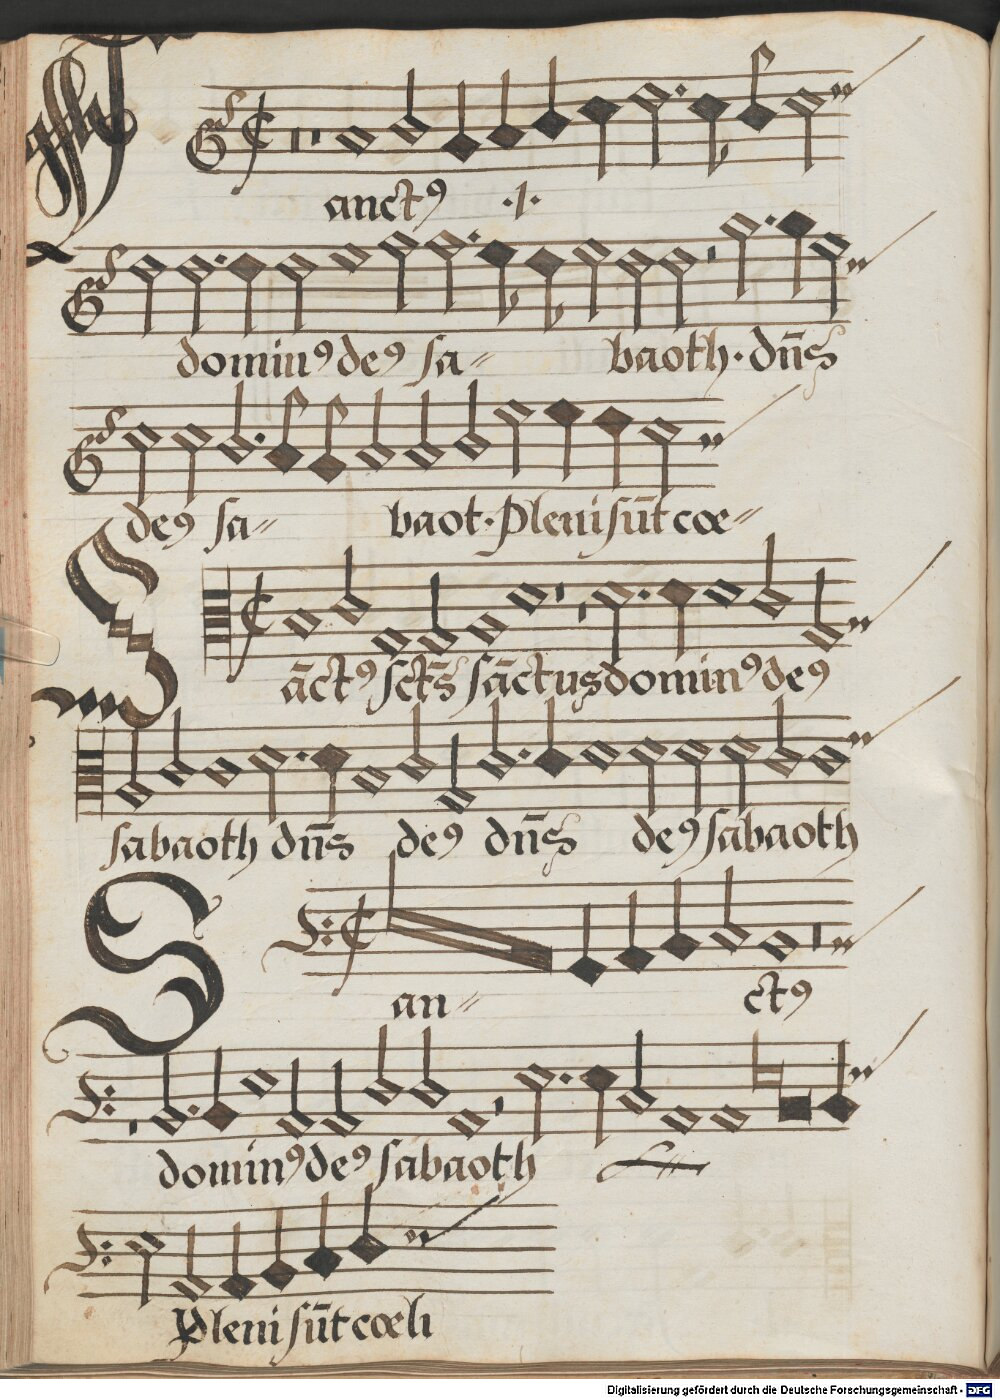 Sanctꝰ ·1·
dominꝰ deꝰ sa-⸗ baoth · dn̄s
deꝰ sa⸗ baot · Pleni sūt cœ⸗
Sāctꝰ sct̄s sāctus dominꝰ deꝰ
sabaoth dn̄s deꝰ dn̄s deꝰ sabaoth
San⸗ ctꝰ
dominꝰ deꝰ sabaoth
Pleni sūt cœli
Digitalisierung gefördert durch die Deutsche Forschungsgemeinschaft - DFG